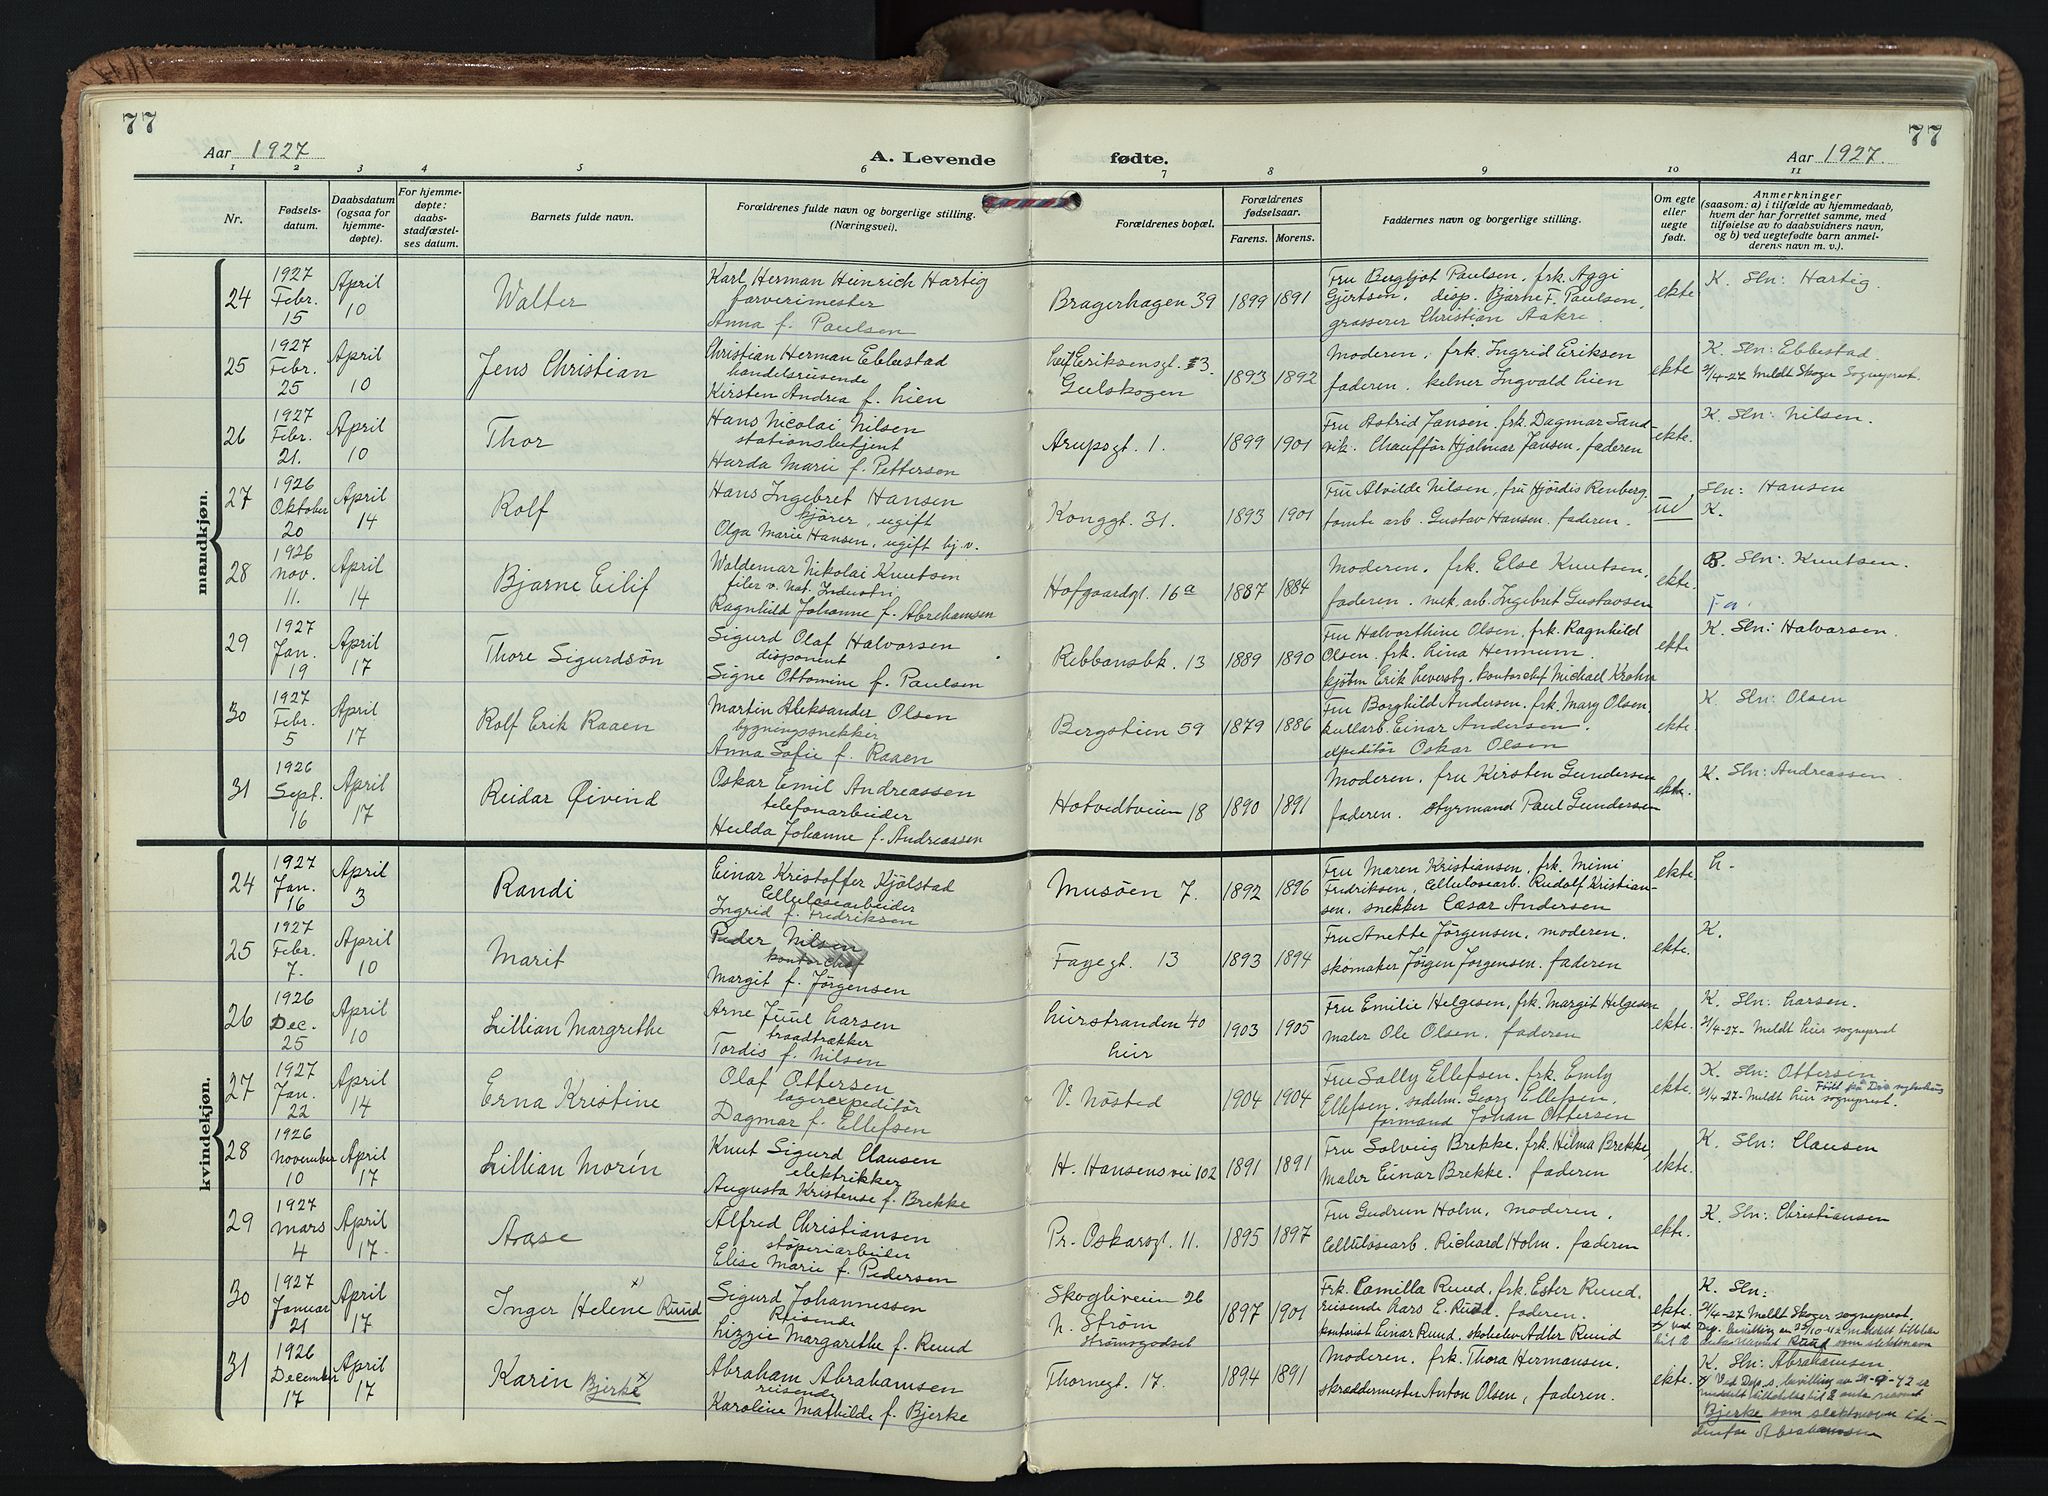 77
77
Aar 1927
A. Levende
fødte.
Aar 1927.
1 2 3 4 5 6 7 8 9 10 11
Nr.
Fødsels-
datum.
Daabsdatum
(ogsaa for
hjemme-
døpte).
For hjemme-
døpte:
daabs-
stadfæstel-
ses datum.
Barnets fulde navn.
Forældrenes fulde navn og borgerlige stilling.
(Næringsvei).
Forældrenes bopæl.
Forældrenes
fødselsaar.
Farens. Morens.
Faddernes navn og borgerlige stilling.
Om egte
eller
uegte
født.
Anmerkninger
(saasom: a) i tilfælde av hjemmedaab,
hvem der har forrettet samme, med
tilføielse av to daabsvidners navn,
og b) ved uegtefødte barn anmel-
derens navn m. v.).
mandkjøn.
24
1927
Febr.
15
April
10
Walter
Karl Herman Heinrich Hartig
farverimester
Anna f. Paulsen
Bragerhagen 39
1899 1891
Fru Bergljot Paulsen, frk. Aggi
Gjertsen, disp. Bjarne F. Paulsen,
grosserer Christian Aakre.
ekte
K. Sln: Hartig.
25
1927
Febr.
25
April
10
Jens Christian
Christian Herman Ebbestad
handelsreisende
Kirsten Andrea f. Lien
Eriksensgt. 3.
Gulskogen
1893 1892
Moderen, frk. Ingrid Eriksen
faderen, kelner Ingvald Lien
ekte.
K. Sln: Ebbestad.
2/4-27 Meldt Skoger Sogneprest.
26
1927
Febr.
21.
April
10
Thor
Hans Nicolai Nilsen
stationsbetjent
Harda Marie f. Pettersen
Arupsgt. 1.
1899 1901
Fru Astrid Jansen, frk. Dagmar Sand-
vik. Chauffør Hjalmar Jansen, faderen
ekte.
K. Sln: Nilsen.
27
1926
Oktober
20
April
14
Rolf
Hans Ingebret Hansen
kjører, ugift
Olga Marie Hansen, ugift hj.v.
Konggt. 31.
1893 1901
Fru Alvilde Nilsen, fru Hjördis Renberg.
tomte arb. Gustav Hansen, faderen.
ue
Sln: Hansen
K.
28
1926
Nov.
11.
April
14
Bjarne Eilif
Waldemar Nikolai Knutsen
filer v. Nat. Industri
Ragnhild Johanne f. Abrahamsen
Hofgaardgt. 16a
1887 1884
Moderen, frk. Else Knutsen,
faderen. mek. arb. Ingebret Gustavsen
ekte.
B. Sln: Knutsen.
Fa.
29
1927
Jan.
19
April
17
Thore Sigurdsön
Sigurd Olaf Halvorsen
disponent
Signe Ottomine f. Paulsen
Ribbansbk. 13
1889 1890
Fru Halvorthine Olsen, frk. Ragnhild
Olsen, frk. Lina Hennum.
kjöbm Erik Leversby, kontorchef Michael Krohn
ekte
K. Sln: Halvorsen.
30
1927
Febr.
5
April
17
Rolf Erik Raaen
Martin Aleksander Olsen
bygningssnekker
Anna Sofie f. Raaen
Bergstien 59
1879 1886
Fru Borghild Andersen, frk. Mary Olsen,
kullarb. Einar Andersen.
expeditör Oskar Olsen
ekte.
K Sln: Olsen
31
1926
Sept.
16
April
17
Reidar Øivind
Oskar Emil Andreassen
telefonarbeider
Hulda Johanne f. Andreassen
Hotvedtveien 18
1890 1891
Moderen, fru Kirsten Gundersen
faderen. styrmand Paul Gundersen
ekte.
K. Sln: Andreassen.
kvindekjøn.
24
1927
Jan.
16
April
3
Randi
Einar Kristoffer Kjölstad
Cellulosearbeider
Ingrid f. Fredriksen
Musöen 7.
1892 1896
Fru Maren Kristiansen, frk. Mimi
Fredriksen, Cellulosearb. Rudolf Kristian-
sen. snekker Cæsar Andersen
ekte.
L.
25
1927
Febr.
7.
April
10
Marit
Peder Nilsen
kontorchef
Margit f. Jörgensen
Fayegt. 13
1893 1894
Fru Anette Jörgensen, moderen.
skomaker Jörgen Jorgensen. faderen
ekte.
K.
26
1926
Dec.
25
April
10
Lillian Margrethe
Arne Juul Larsen
traadtrækker
Tordis f. Nilsen
Lierstranden 40
Lier
1903 1905
Fru Emilie Helgesen, frk. Margit Helgesen
maler Ole Olsen, faderen
ekte.
K. Sln: Larsen.
2/4-27- Meldt Lier sogneprest
27
1927
Jan.
22
April
14
Erna Kristine
Olaf Ottersen
lagerexpeditör
Dagmar f. Ellefsen
V. Nösted
1904 1904
Fru Sally Ellefsen, frk. Emly
Ellefsen, sadelm. Georg Ellefsen,
formand Johan Ottersen
ekte.
K. Sln: Ottersen
Födt på Dra sykehus
2/4-27- Meldt Lier sogneprest.
28
1926
November
10
April
17
Lillian Morén
Knut Sigurd Clausen
elektrikker
Augusta Kristense f. Brekke
H. Hansensvei 102
1891 1891
Fru Solveig Brekke, frk. Hilma Brekke,
Maler Einar Brekke, faderen
ekte.
K. Sln: Clausen
29
1927
Mars
4
April
17.
Aase
Alfred Christiansen
stöperiarbeider
Elise Marie f. Pedersen
Pr. Oskarsgt. 11.
1895 1897
Fru Gudrun Holm, moderen.
Cellulosearb. Richard Holm, faderen
ekte.
K. Sln: Christiansen
30
1927
Januar
21
April
17
Inger Helene x) Ruud
Sigurd Johannessen
Reisende
Lizzie Margarethe f. Ruud
Skogliveien 26
N. Ström
Strömsgodset
1897 1901
Frk. Camilla Ruud, frk. Ester Ruud.
reisende Lars E. Ruud, faderen.
kontorist Einar Ruud, skoleelev Adler Ruud
ekte.
K. Sln:
2/4-27 Meldt Skoger sogneprest.
x) ved Dep. bevilling av 22/10-42 meddelt tillatelse
til å anta navnet Ruud som slektsnavn
31
1926
December
17
April
17
Karin Bjerke x)
Abraham Abrahamsen
reisende
Karoline Mathilde f. Bjerke
Thornegt. 17.
1894 1891
Moderen, frk. Thora Hermansen.
skræddermester Anton Olsen, faderen.
ekte.
K. Sln: Abrahamsen
x) Ved Dep.s bevilling av 29-9-42 er
meddelt tillatelse til å anta navnet
Bjerke som slektnavn iste-
denfor Abrahamsen